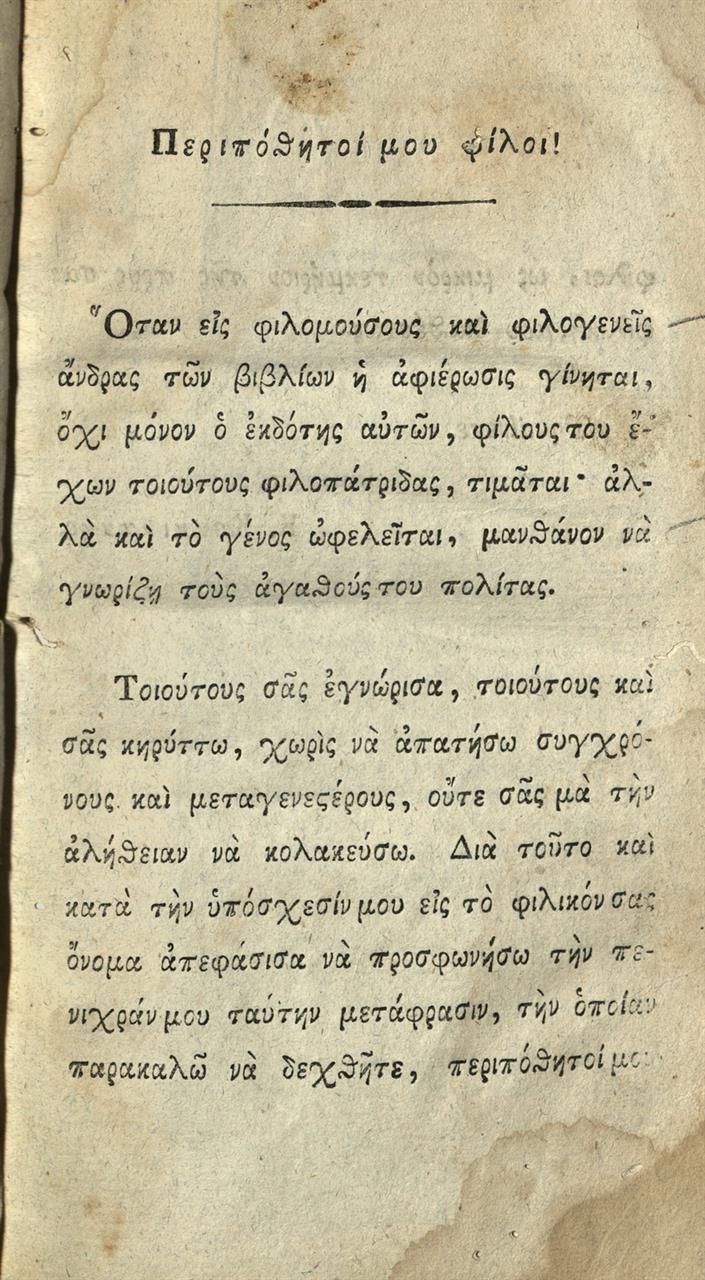 Περιπόθητοί μου φίλοι!
Ὅταν εἰς φιλομούσους καὶ φιλογενεῖς
ἄνδρας τῶν βιβλίων ἡ ἀφιέρωσις γίνηται,
ὄχι μόνον ὁ ἐκδότης αὐτῶν, φίλους του ἔ-
χων τοιούτους φιλοπάτριδας, τιμᾶται· ἀλ-
λὰ καὶ τὸ γένος ὠφελεῖται, μανθάνον νὰ
γνωρίζῃ τοὺς ἀγαθούς του πολίτας.
Τοιούτους σᾶς ἐγνώρισα, τοιούτους καὶ
σᾶς κηρύττω, χωρὶς νὰ ἀπατήσω συγχρό-
νους καὶ μεταγενεϛέρους, οὔτε σᾶς μὰ τὴν
ἀλήθειαν νὰ κολακεύσω. Διὰ τοῦτο καὶ
κατὰ τὴν ὑπόσχεσίν μου εἰς τὸ φιλικόν σας
ὄνομα ἀπεφάσισα νὰ προσφωνήσω τὴν πε-
νιχράν μου ταύτην μετάφρασιν, τὴν ὁποίαν
παρακαλῶ νὰ δεχθῆτε, περιπόθητοί μου